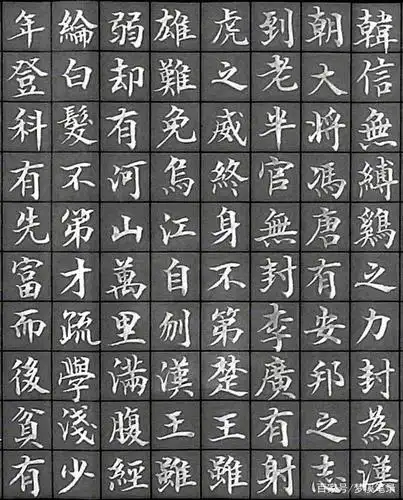 韓信無縛鷄之力封為漢
朝大將馮唐有安邦之志
到老半官無封李廣有射
虎之威終身不第楚王雖
雄難免烏江自刎漢王雖
弱却有河山萬里滿腹經
綸白髮不第才疏學淺少
年登科有先富而後貧有
百家号/梦溪笔录